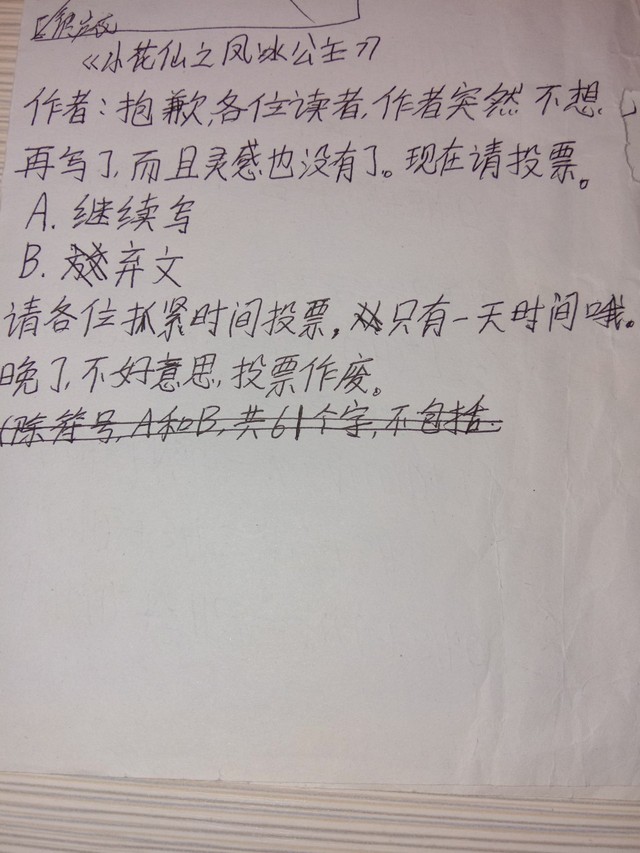 《小花仙之凤冰公主》
作者：抱歉,各位读者,作者突然不想
再写了,而且灵感也没有了。现在请投票。
A. 继续写
B. 弃文
请各位抓紧时间投票,只有一天时间哦。
晚了,不好意思,投票作废。
(除符号,A和B,共61个字,不包括